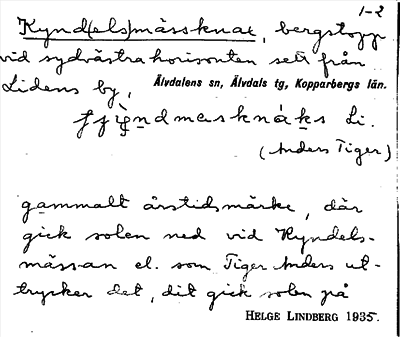 1-2
Kynd(els)mässknać, bergstopp
vid sydvästra horisonten sett från
Lidens by,
Älvdalens sn, Älvdals tg, Kopparbergs län.
Li.
(Anders Tiger)
gammalt årstidsmärke, där
gick solen ned vid Kyndels-
mässan el. som Tiger Anders ut-
trycker det, dit gick solen på
HELGE LINDBERG 1935.